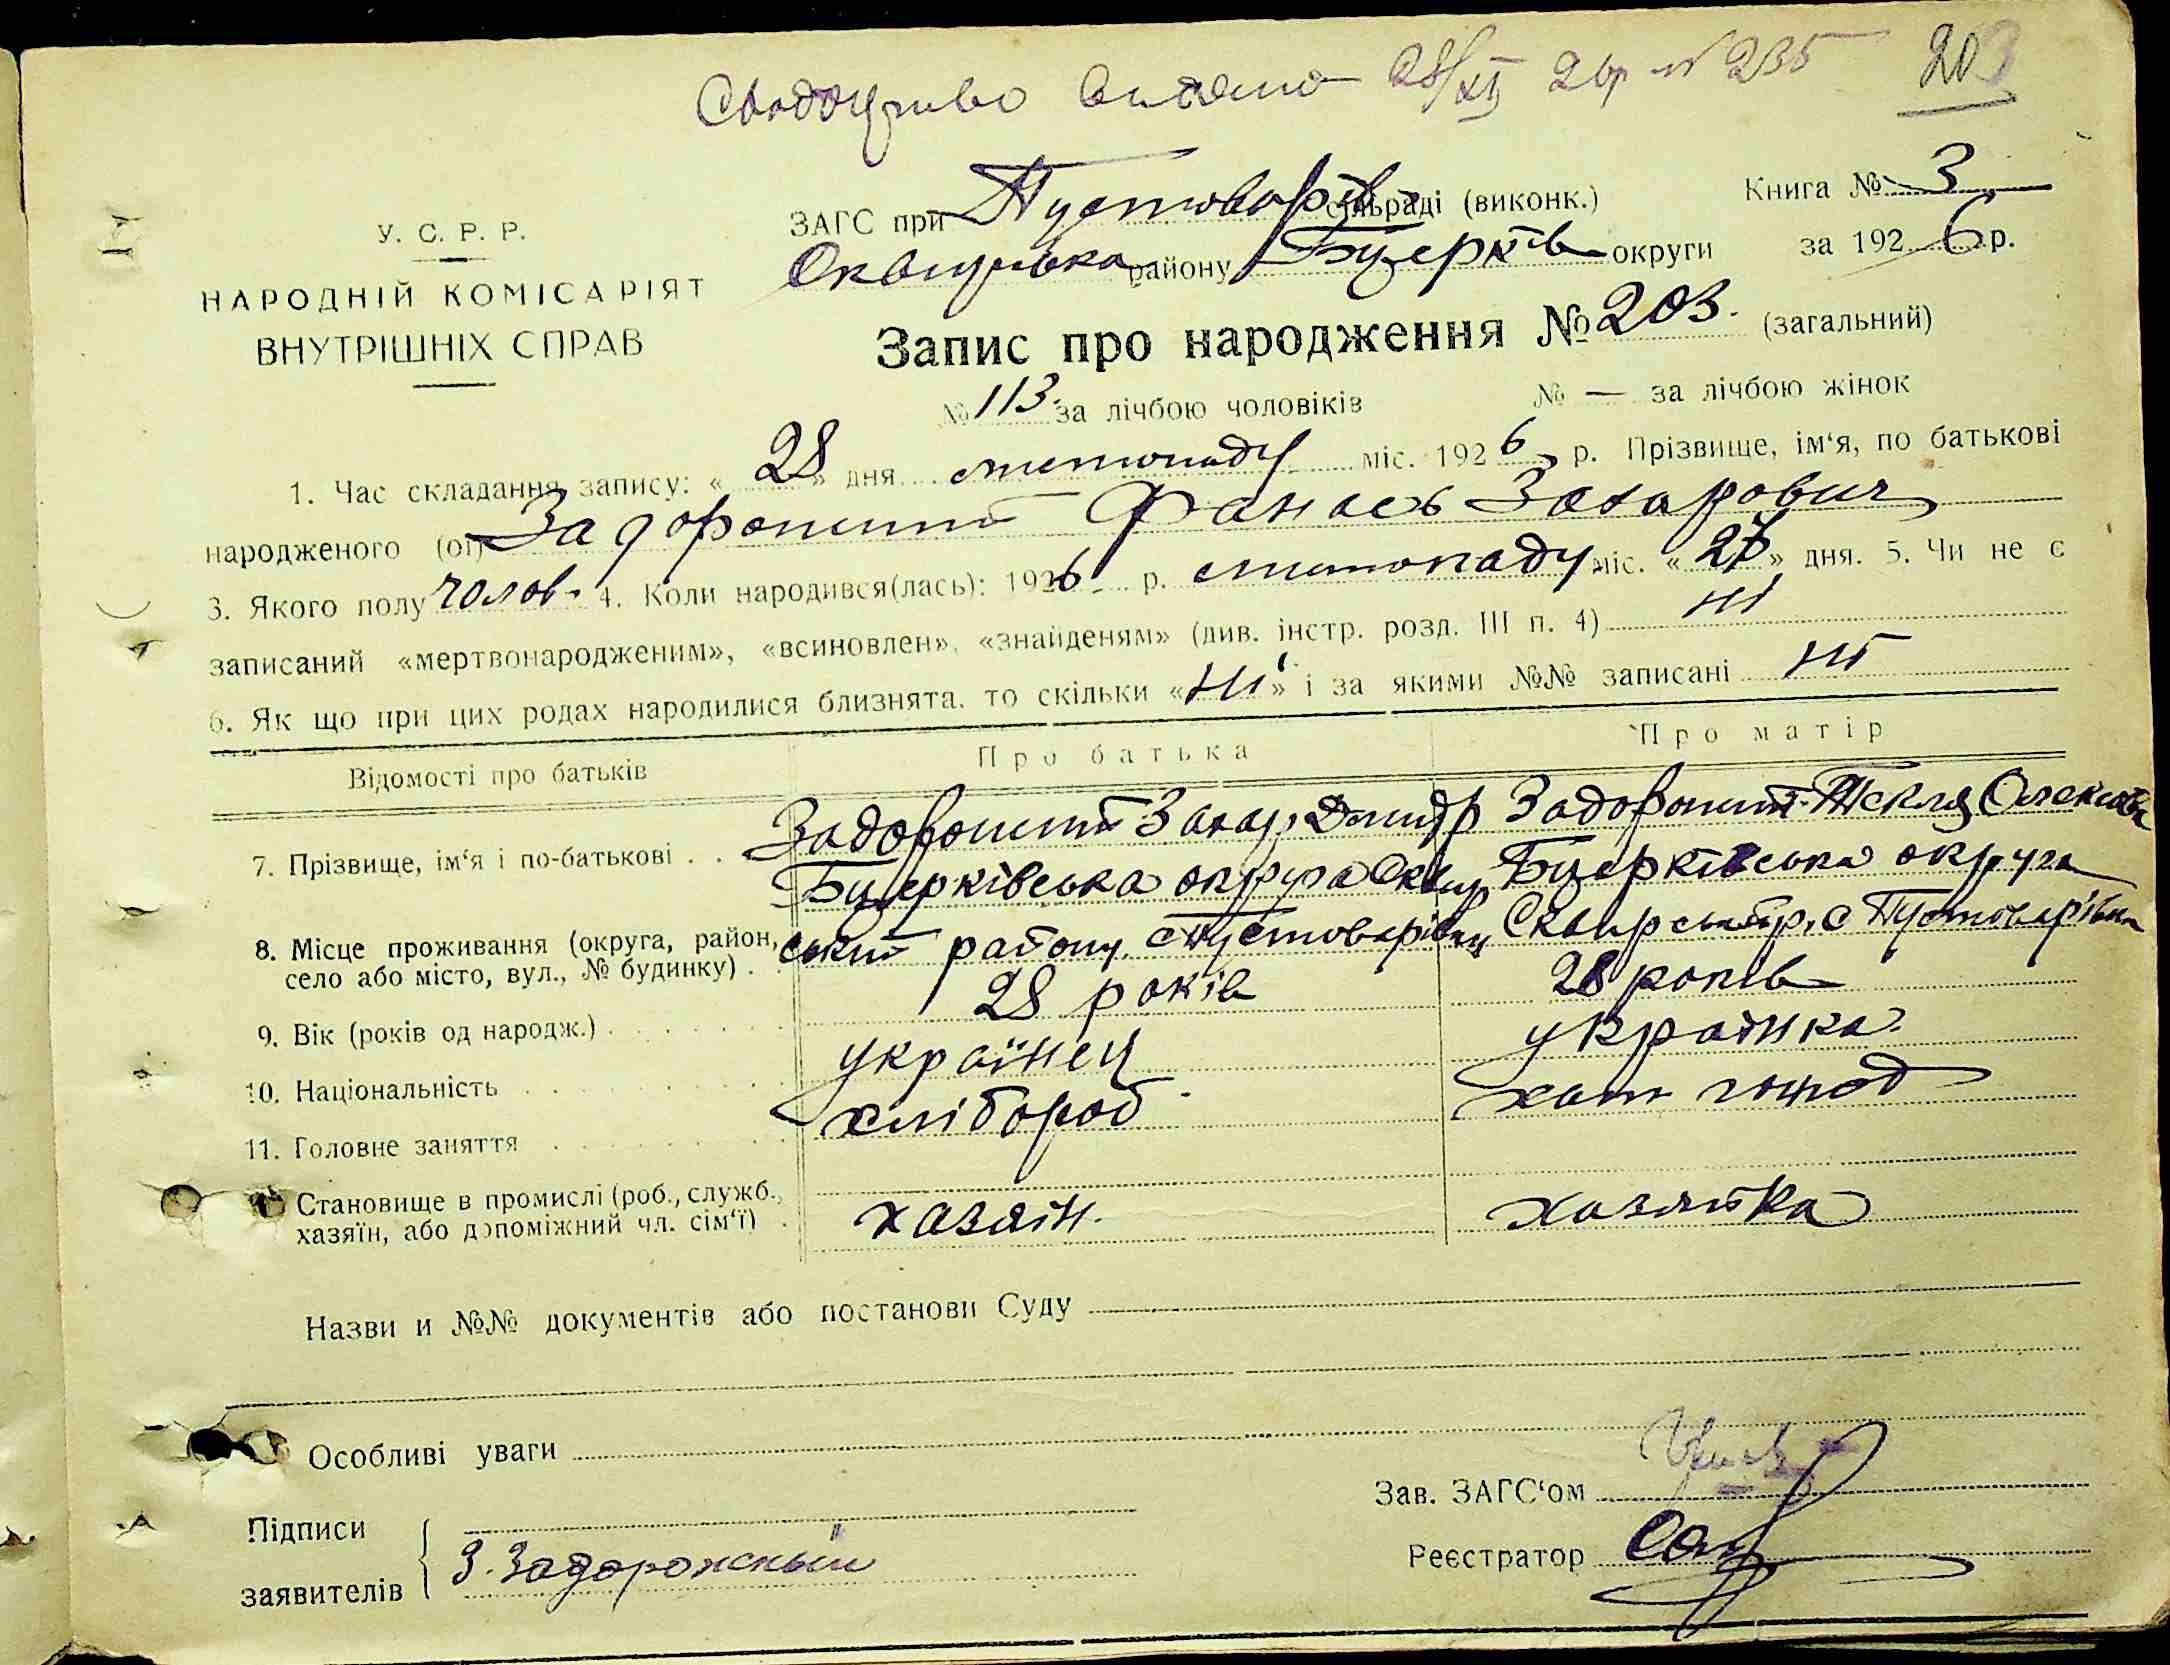 Свідоцтво видано 28/XI 26р № 235 203
ЗАГС при Пустоварів сільраді (виконк.) Книга № 3
Сквирська району Бцерків округи за 1926 р.
У. С. Р. Р.
НАРОДНІЙ КОМІСАРІЯТ
ВНУТРІШНІХ СПРАВ
Запис про народження № 203. (загальний)
№ 113. за лічбою чоловіків № — за лічбою жінок
1. Час складання запису: « 28 » дня листопаду міс. 1926 р. Прізвище, ім‘я, по батькові
народженого (ої) Задорожний Фанась Захарович
3. Якого полу чолов. 4. Коли народився(лась): 1926 р. листопаду міс. « 27 » дня. 5. Чи не є
записаний «мертвонародженим», «всиновлен», «знайденям» (див. інстр. розд. III п. 4) ні
6. Як що при цих родах народилися близнята, то скільки « ні » і за якими №№ записані ні
Відомості про батьків Про батька Про матір
7. Прізвище, ім‘я і по-батькові . . Задорожний Захар Дмитр Задорожня Текля Олексієвн
Бцерківська округа Сквир Бцерківська округа
8. Місце проживання (округа, район, ський району. с Пустоварівц Сквирський р, с Пустоварівка
село або місто, вул., № будинку) .
9. Вік (років од народж.) 28 років 28 років
10. Національність українец українка
11. Головне заняття хлібороб хатн господ
Становище в промислі (роб., служб., хазяїн. хазяйка
хазяїн, або допоміжний чл. сім‘ї) .
Назви и №№ документів або постанови Суду
Особливі уваги
Зав. ЗАГС‘ом
Підписи
заявителів З. Задорожный
Реєстратор